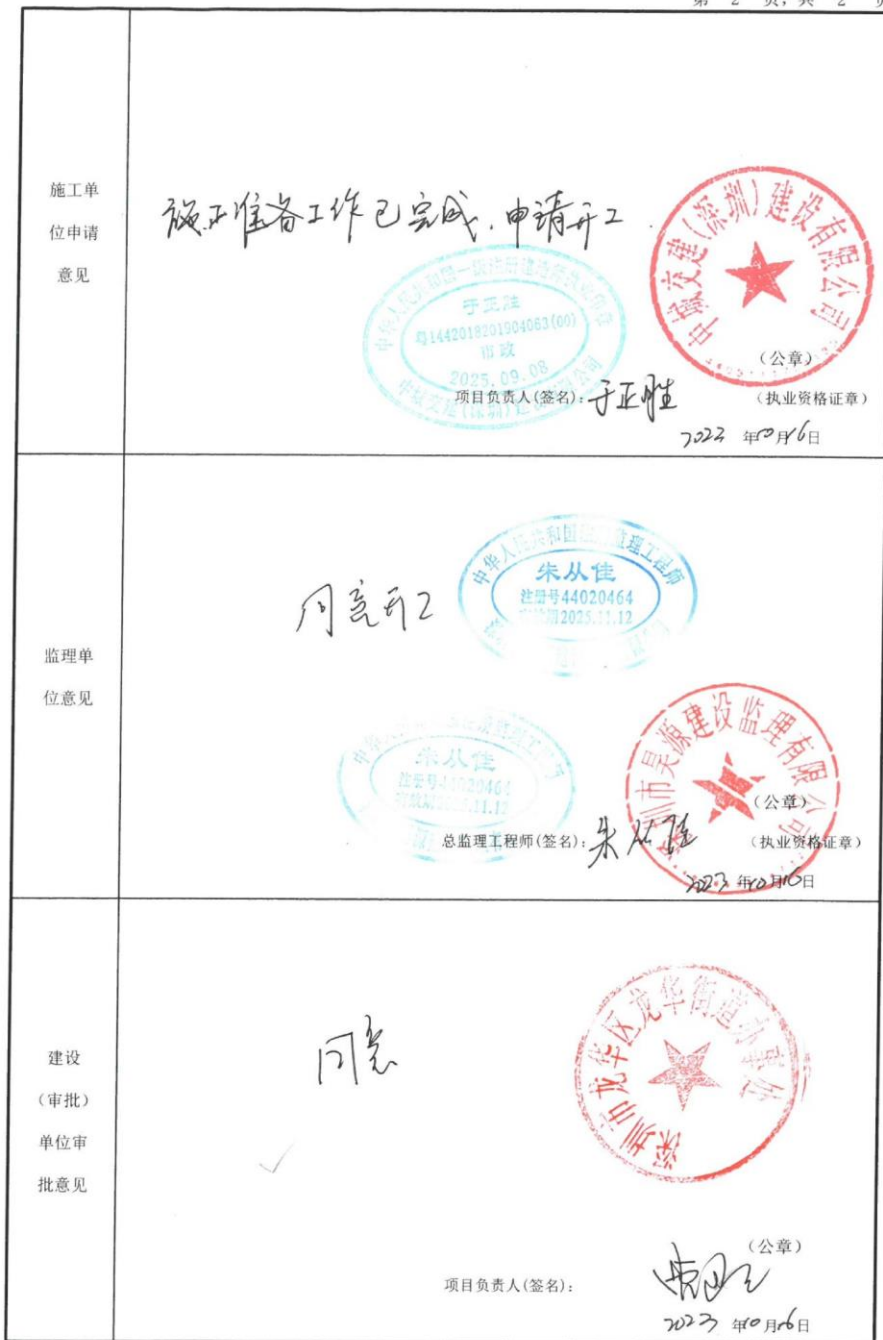 第 2 页，共 2 页
施工单
位申请
意见
施工准备工作已完成，申请开工
中城交建(深圳)建设有限公司
中华人民共和国一级注册建造师执业印章
于正胜
粤1442018201904063(00)
市政
2025.09.08
中城交建(深圳)建设有限公司
(公章)
项目负责人(签名): 于正胜
(执业资格证章)
2023 年10月16日
监理单
位意见
同意开工
中华人民共和国注册监理工程师
朱从佳
注册号44020464
有效期2025.11.12
朱从佳
注册号44020464
有效期2025.11.12
深圳市昊源建设监理有限公司
(公章)
总监理工程师(签名): 朱从佳
(执业资格证章)
2023 年10月16日
建设
(审批)
单位审
批意见
同意
深圳市龙华区龙华街道办事处
(公章)
项目负责人(签名):
2023 年10月16日